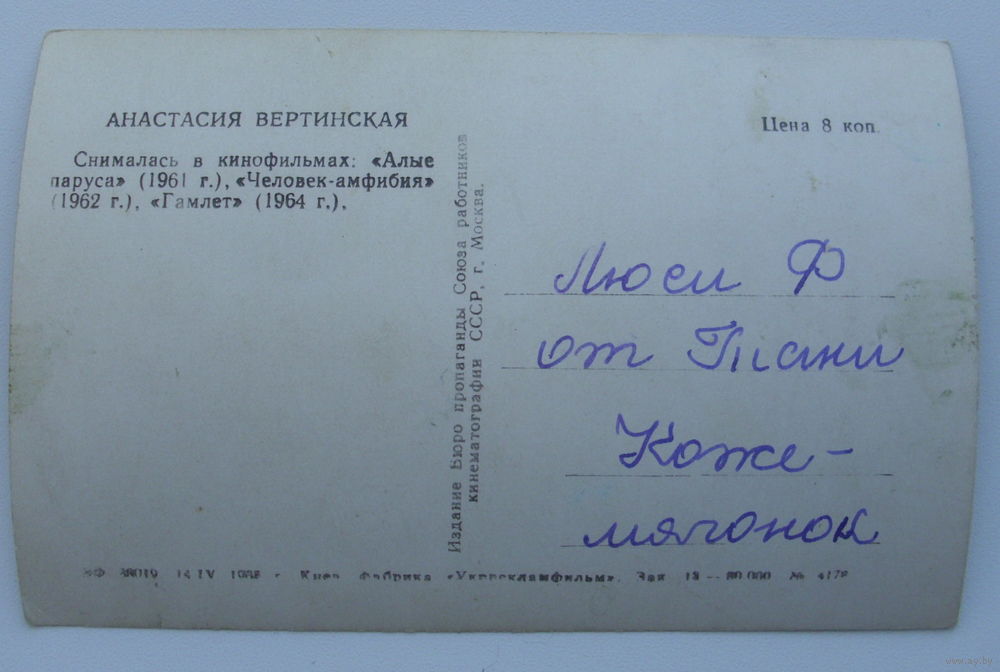 АНАСТАСИЯ ВЕРТИНСКАЯ
Снималась в кинофильмах: «Алые
паруса» (1961 г.), «Человек-амфибия»
(1962 г.), «Гамлет» (1964 г.).
Издание Бюро пропаганды Союза работников
кинематографии СССР, г. Москва.
Цена 8 коп.
Люси Ф
от Тани
Коже-
мячонок
14 IV г. Киев Фабрика «Укррекламфильм». Зак. 13—80.000 №
www.ay.by